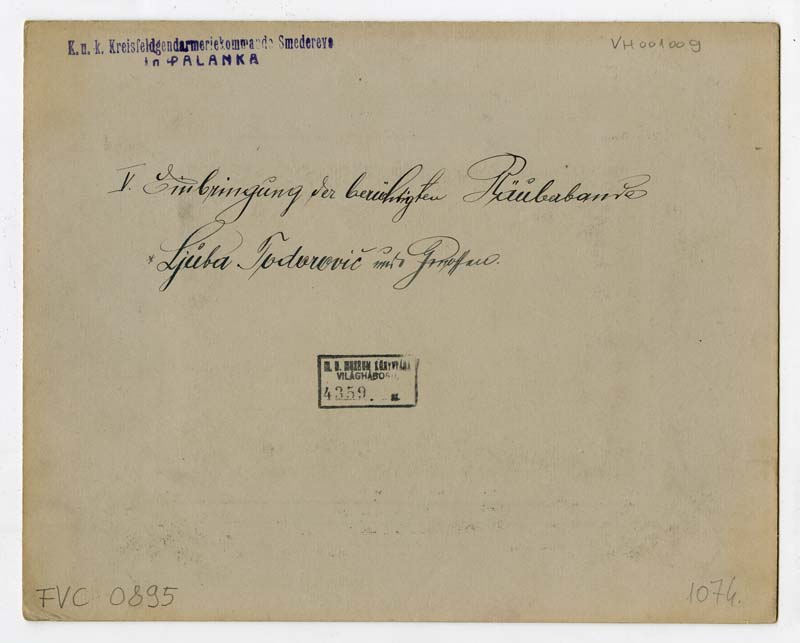 K. u. k. Kreisfeldgendarmeriekommando Smederevo
in PALANKA
VH001009
V. Einbringung der berüchtigten Räuberbande
Ljuba Todorović und Genossen.
M. N. MUZEUM KÖNYVTÁRA
VILÁGHÁBORÚ
4359.
FVC 0895
1074.